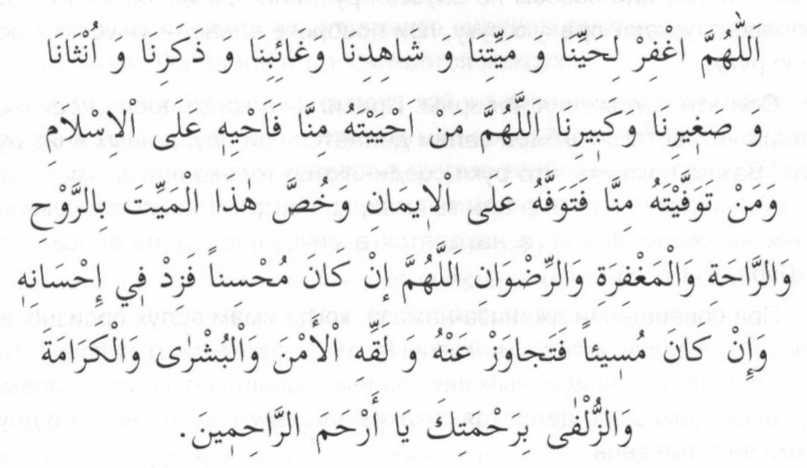 اَللّٰهُمَّ اغْفِرْ لِحَيِّنَا وَ مَيِّتِنَا وَ شَاهِدِنَا وَغَائِبِنَا وَ ذَكَرِنَا وَ اُنْثَانَا
وَ صَغِيرِنَا وَكَبِيرِنَا اَللَّهُمَّ مَنْ اَحْيَيْتَهُ مِنَّا فَاَحْيِهِ عَلَى الْاِسْلَامِ
وَمَنْ تَوَفَّيْتَهُ مِنَّا فَتَوَفَّهُ عَلَى الْاِيمَانِ وَخُصَّ هٰذَا الْمَيِّتَ بِالرَّوْحِ
وَالرَّاحَةِ وَالْمَغْفِرَةِ وَالرِّضْوَانِ اَللَّهُمَّ اِنْ كَانَ مُحْسِناً فَزِدْ فِي إِحْسَانِهِ
وَإِنْ كَانَ مُسِيئاً فَتَجَاوَزْ عَنْهُ وَ لَقِّهِ الْأَمْنَ وَالْبُشْرٰى وَالْكَرَامَةَ
وَالزُّلْفٰى بِرَحْمَتِكَ يَا أَرْحَمَ الرَّاحِمِينَ.